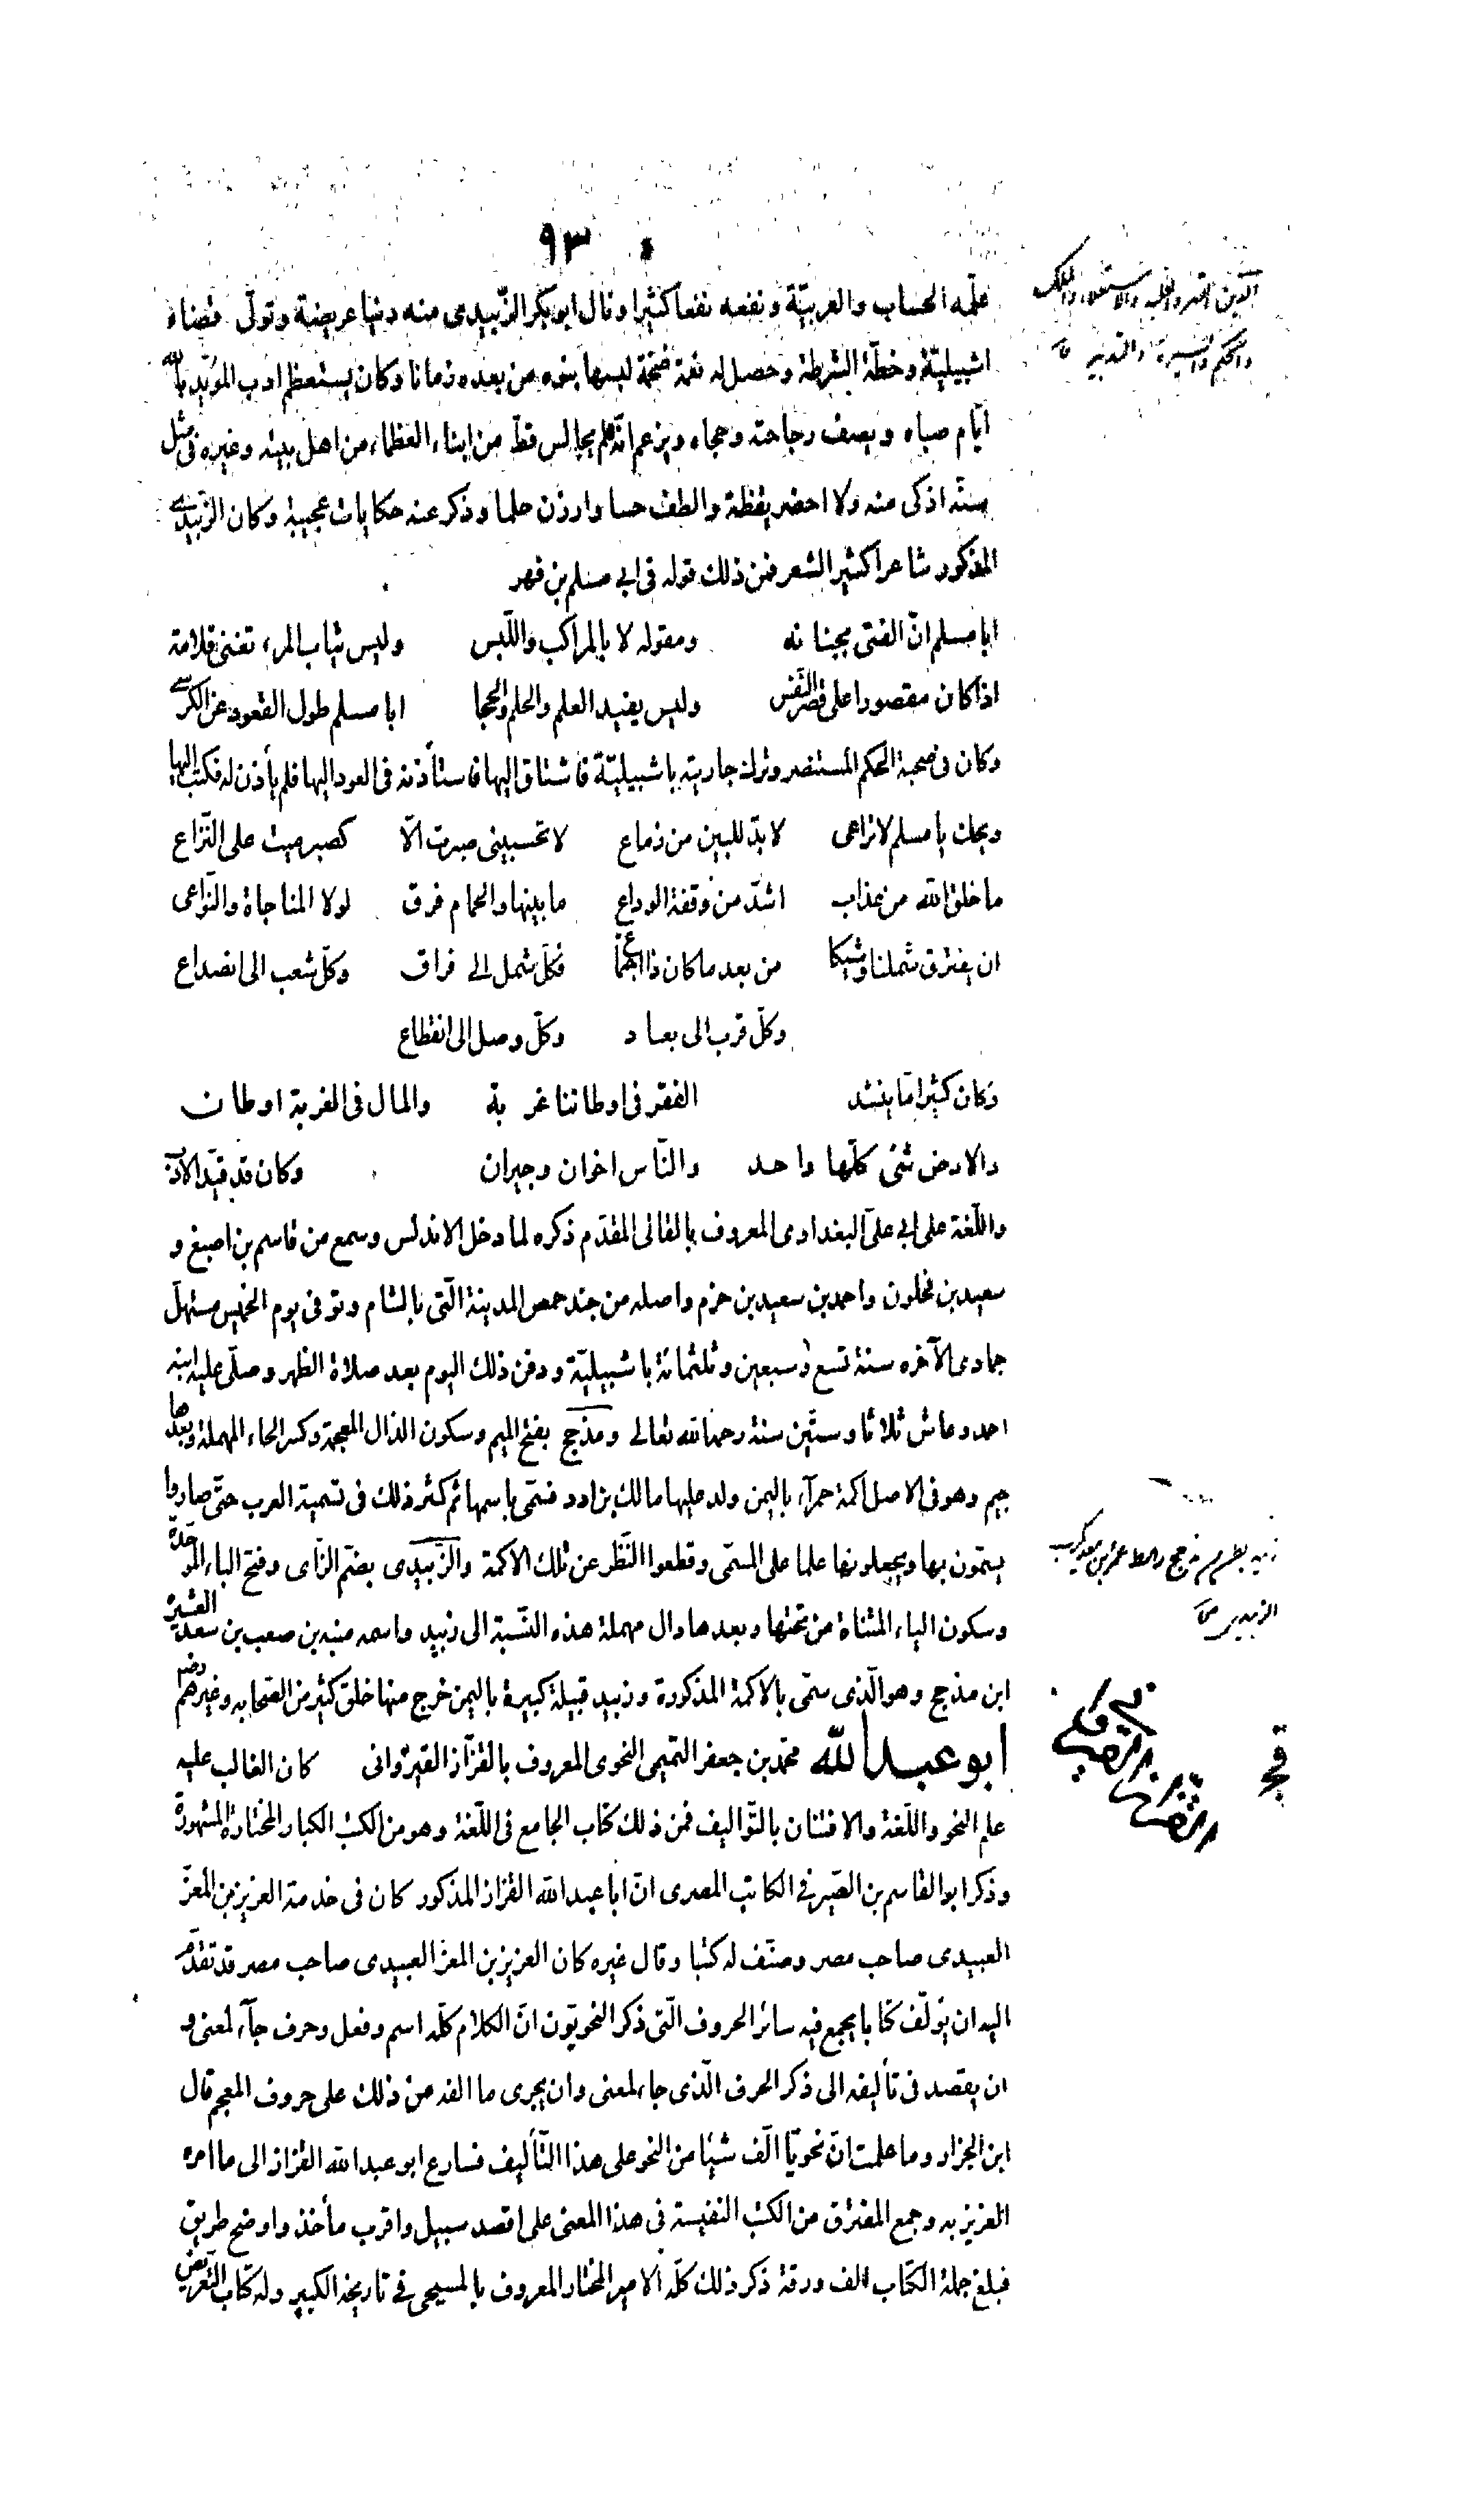 ٩٣
علّمه الحساب والعربيّة ونفعه نفعا كثيرا ونال ابو بكر الزّبيدى منه دنيا عريضة وتولّى قضاء
اشبيليّة وخطّة الشرطة وحصل له نعمة ضخمة لبسها بنوه من بعده زمانا وكان يستعظم ادب المؤيّد بالله
ايّام صباه ويصف رجاحته وحجاه ويزعم انّه لم يجالس قطّ من ابناء العظماء من اهل بيته وغيره فى مثل
سنّه اذكى منه ولا احضر يقظة والطف حسا وارزن حلما وذكر عنه حكايات عجيبة وكان الزّبيدى
المذكور شاعرا كثير الشعر فمن ذلك قوله فى ابى مسلم بن فهر
ابا مسلم انّ الفتى بجنانه ومقوله لا بالمراكب واللّبس وليس ثياب المرء تغنى قلامة
اذا كان مقصورا على قصر النّفس وليس يفيد العلم والحلم والحجا ابا مسلم طول القعود على الكرسى
وكان فى صحبة الحكم المستنصر وترك جاريته باشبيليّة فاشتاق اليها فاستأذنه فى العود اليها فلم يأذن له فكتب اليها
ويحك يا مسلم لا تراعى لا بدّ للبين من زماع لا تحسبينى صبرت الّا كصبر ميت على النّزاع
ما خلق الله من عذاب اشدّ من وقفة الوداع ما بينها والحمام فرق لولا المناجاة والنّواعى
ان يفترق شملنا وشيكا من بعد ما كان ذا اجتماع فكلّ شمل الى فراق وكلّ شعب الى انصداع
وكلّ قرب الى بعاد وكلّ وصل الى انقطاع
وكان كثيرا ما ينشد الفقر فى اوطاننا غربة والمال فى الغربة اوطان
والارض شئ كلّها واحد والنّاس اخوان وجيران وكان قد قيّد الادب
واللّغة على ابى علىّ البغدادى المعروف بالقالى المقدّم ذكره لما دخل الاندلس وسمع من قاسم بن اصبغ و
سعيد بن فحلون واحمد بن سعيد بن حزم واصله من جند حمص المدينة الّتى بالشام وتوفى يوم الخميس مستهلّ
جمادى الآخره سنة تسع وسبعين وثلثمائة باشبيليّة ودفن ذلك اليوم بعد صلاة الظهر وصلّى عليه ابنه
احمد وعاش ثلاثا وستّين سنة رحمه الله تعالى ومذحج بفتح الميم وسكون الذال المعجمة وكسر الحاء المهملة وبعدها
جيم وهو فى الاصل اكمة حمرآء باليمن ولد عليها مالك بن ادد فسمّى باسمها ثم كثر ذلك فى تسمية العرب حتّى صاروا
يسمّون بها ويجعلونها علما على المسمّى وقطعوا النّظر عن تلك الاكمة والزّبيدى بضمّ الزّاى وفتح الباء الموحّدة
وسكون الياء المثنّاة من تحتها وبعدها دال مهملة هذه النّسبة الى زبيد واسمه منبه بن صعب بن سعد العشيرة
ابن مذحج وهو الّذى سمّى بالاكمة المذكورة وزبيد قبيلة كبيرة باليمن خرج منها خلق كثير من الصّحابه وغيرهم رضه
ابو عبد الله محمّد بن جعفر التميمى النحوى المعروف بالقزّاز القيروانى كان الغالب عليه
علم النحو واللّغة والافتنان بالتّواليف فمن ذلك كتاب الجامع فى اللّغة وهو من الكتب الكبار المختارة المشهورة
وذكر ابو القاسم بن الصّيرفى الكاتب المصرى انّ ابا عبد الله القزاز المذكور كان فى خدمة العزيز بن المعزّ
العبيدى صاحب مصر وصنّف له كتبا وقال غيره كان العزيز بن المعزّ العبيدى صاحب مصر قد تقدّم
اليه ان يؤلّف كتابا يجمع فيه سائر الحروف الّتى ذكر النحويّون انّ الكلام كلّه اسم وفعل وحرف جآء لمعنى و
ان يقصد فى تأليفه الى ذكر الحرف الّذى جاء لمعنى وان يجرى ما الفه من ذلك على حروف المعجم قال
ابن الجزار وما علمت انّ نحويّا الّف شيئا من النحو على هذا التّأليف فسارع ابو عبد الله القزاز الى ما امره
العزيز به وجمع المفترق من الكتب النفيسة فى هذا المعنى على اقصد سبيل واقرب مأخذ واوضح طريق
فبلغ جملة الكتاب الف ورقة ذكر ذلك كلّه الامير المختار المعروف بالمسيحى فى تاريخه الكبير وله كتاب التّعريض